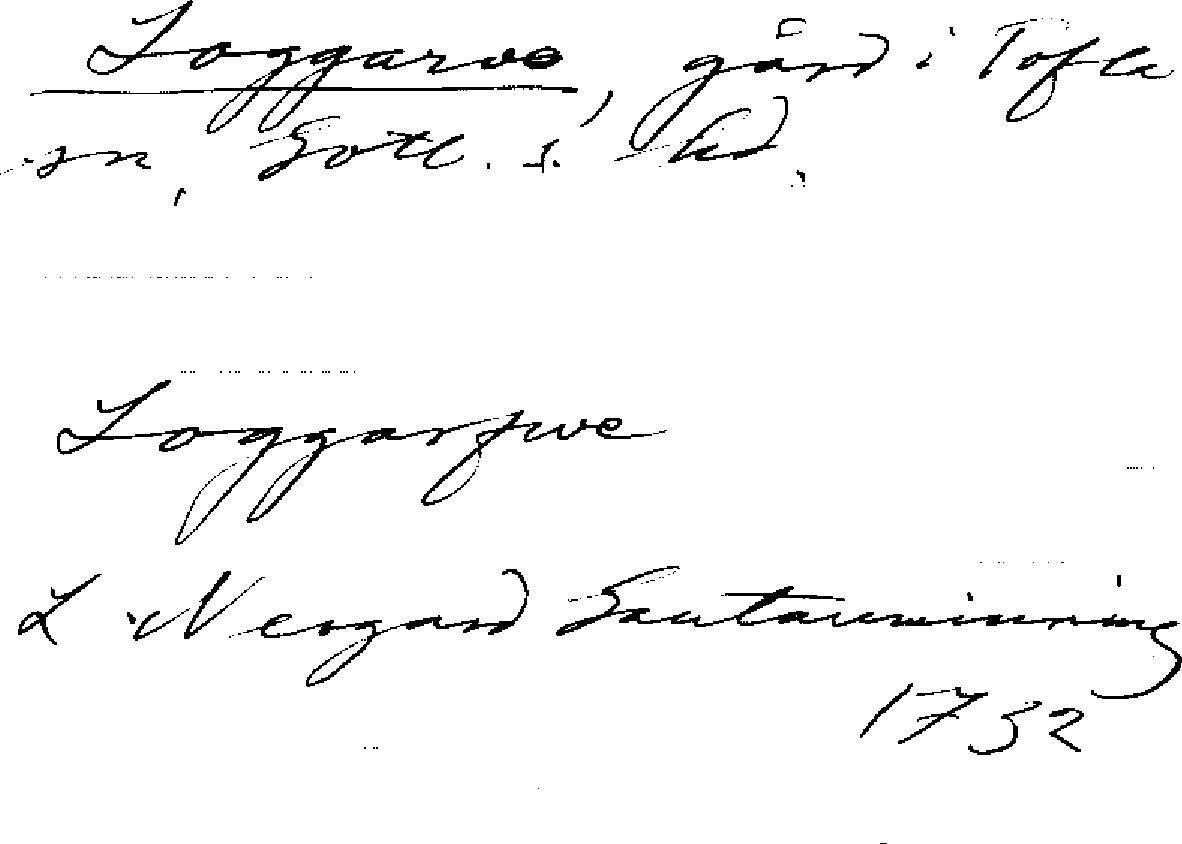 Loggarve, gård i Tofta
sn, Gotl. s. hd.
Loggarfwe
L. Neogard Gautauminning
1732